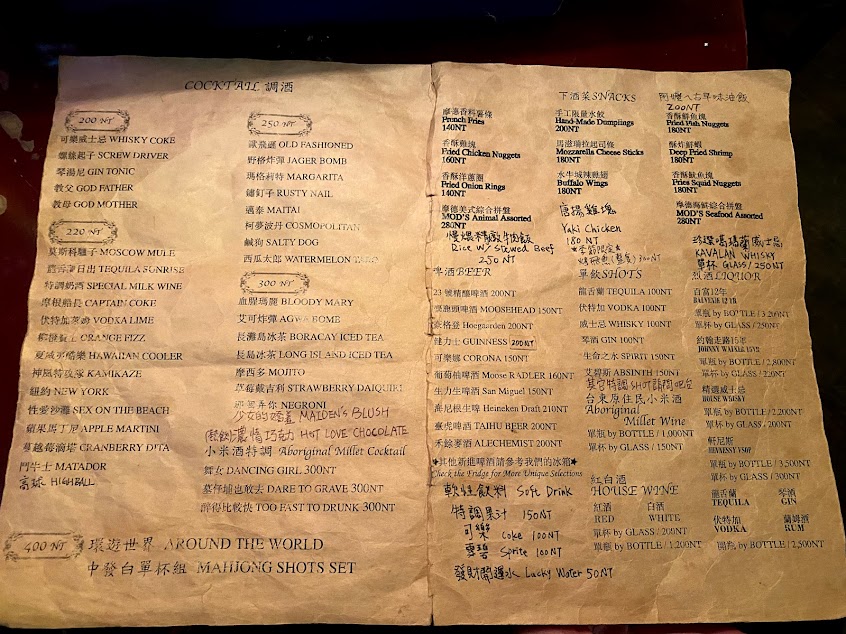 COCKTAIL 調酒
200 NT
可樂威士忌 WHISKY COKE
螺絲起子 SCREW DRIVER
琴湯尼 GIN TONIC
教父 GOD FATHER
教母 GOD MOTHER
220 NT
莫斯科騾子 MOSCOW MULE
龍舌蘭日出 TEQUILA SUNRISE
特調奶酒 SPECIAL MILK WINE
摩根船長 CAPTAIN COKE
伏特加萊姆 VODKA LIME
柳橙費士 ORANGE FIZZ
夏威夷酷樂 HAWAIIAN COOLER
神風特攻隊 KAMIKAZE
紐約 NEW YORK
性愛沙灘 SEX ON THE BEACH
蘋果馬丁尼 APPLE MARTINI
蔓越莓滴塔 CRANBERRY DITA
鬥牛士 MATADOR
高球 HIGHBALL
250 NT
OLD FASHIONED
野格炸彈 JAGER BOMB
瑪格莉特 MARGARITA
鏽釘子 RUSTY NAIL
邁泰 MAITAI
柯夢波丹 COSMOPOLITAN
鹹狗 SALTY DOG
西瓜太郎 WATERMELON TARO
300 NT
血腥瑪麗 BLOODY MARY
艾可炸彈 AGWA BOMB
長灘島冰茶 BORACAY ICED TEA
長島冰茶 LONG ISLAND ICED TEA
摩西多 MOJITO
草莓戴吉利 STRAWBERRY DAIQUIRI
NEGRONI
少女的 MAIDEN'S BLUSH
濃情巧克力 HOT LOVE CHOCOLATE
小米酒特調 Aboriginal Millet Cocktail
舞女 DANCING GIRL 300NT
墓仔埔也敢去 DARE TO GRAVE 300NT
醉得比較快 TOO EAST TO DRUNK 300NT
400 NT
環遊世界 AROUND THE WORLD
中發白單杯組 MAHJONG SHOTS SET
下酒菜 SNACKS
阿嬤ㄟ古早味油飯
200NT
摩德香料薯條
French Fries
140NT
手工限量水餃
Hand-Made Dumplings
200NT
香酥鮮魚塊
Fried Fish Nuggets
180NT
香酥雞塊
Fried Chicken Nuggets
160NT
馬滋瑞拉起司條
Mozzarella Cheese Sticks
180NT
酥炸鮮蝦
Deep Fried Shrimp
180NT
香酥洋蔥圈
Fried Onion Rings
140NT
水牛城辣雞翅
Buffalo Wings
180NT
香酥魷魚塊
Fries Squid Nuggets
180NT
摩德美式綜合拼盤
MOD'S Animal Assorted
280NT
唐揚雞塊
Yaki Chicken
180 NT
摩德海鮮綜合拼盤
MOD'S Seafood Assorted
280NT
慢燉精緻牛肉飯
Rice w/ Stewed Beef
250 NT
★季節限定★
300NT
噶瑪蘭威士忌
KAVALAN WHISKY
單杯 GLASS/250NT
啤酒 BEER
23 號精釀啤酒 200NT
麋鹿頭啤酒 MOOSEHEAD 150NT
豪格登 Hoegaarden 200NT
健力士 GUINNESS 200NT
可樂娜 CORONA 150NT
葡萄柚啤酒 Moose RADLER 160NT
生力生啤酒 San Miguel 150NT
海尼根生啤 Heineken Draft 210NT
臺虎啤酒 TAIHU BEER 200NT
禾餘麥酒 ALECHEMIST 200NT
★其他新進啤酒請參考我們的冰箱★
Check the Fridge for More Unique Selections
軟性飲料 Soft Drink
特調果汁 150NT
可樂 Coke 100NT
雪碧 Sprite 100NT
發財開運水 Lucky Water 50NT
單飲 SHOTS
龍舌蘭 TEQUILA 100NT
伏特加 VODKA 100NT
威士忌 WHISKY 100NT
琴酒 GIN 100NT
生命之水 SPIRIT 150NT
艾碧斯 ABSINTH 150NT
其它特調 SHOT 請問吧台
台東原住民小米酒
Aboriginal
Millet Wine
單瓶 by BOTTLE / 1,000NT
單杯 by GLASS / 150NT
紅白酒
HOUSE WINE
紅酒 白酒
RED WHITE
單杯 by GLASS / 200NT
單瓶 by BOTTLE / 1,200NT
烈酒 LIQUOR
百富12年
BALVENIE 12 YR
單瓶 by BOTTLE / 3,200NT
單杯 by GLASS / 250NT
約翰走路15年
JOHNNY WALKER 15YR
單瓶 by BOTTLE / 2,800NT
單杯 by GLASS / 220NT
精選威士忌
HOUSE WHISKY
單瓶 by BOTTLE / 2,200NT
單杯 by GLASS / 200NT
軒尼斯
HENNESSY VSOP
單瓶 by BOTTLE / 3,500NT
單杯 by GLASS / 300NT
龍舌蘭 琴酒
TEQUILA GIN
伏特加 蘭姆酒
VODKA RUM
開瓶 by BOTTLE / 2,500NT